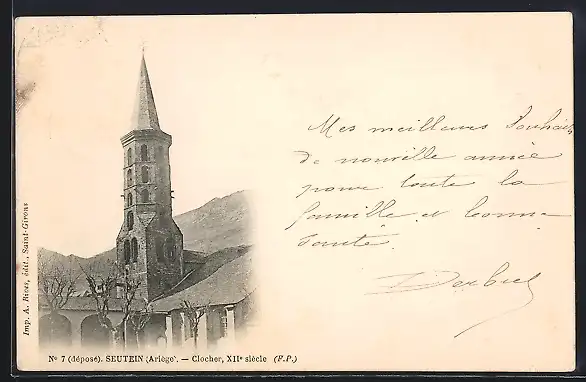 Mes meilleurs Souhais
de nouvelle année
pour toute la
famille et bonne
santé
Imp. A. Rives, édit., Saint-Girons
Nº 7 (déposé). SEUTEIN (Ariège). — Clocher, XIIe siècle (F.P.)